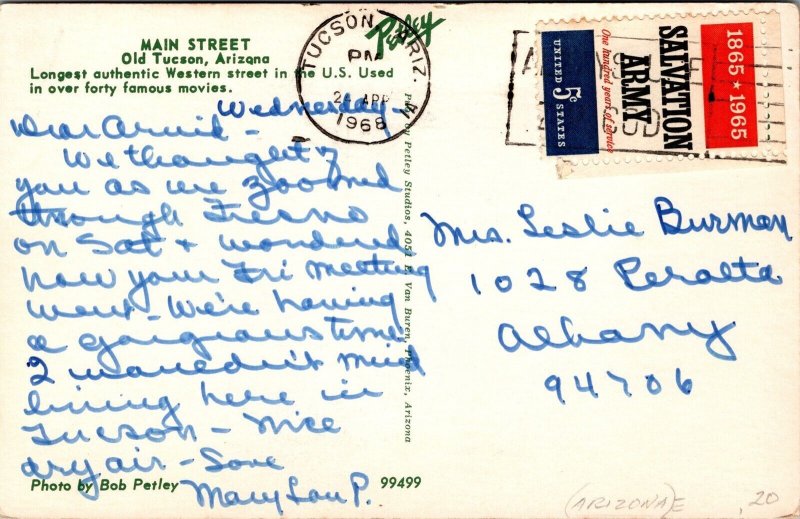 MAIN STREET
Old Tucson, Arizona
Longest authentic Western street in the U.S. Used
in over forty famous movies.
Petley
TUCSON, ARIZ.
PM
APR
1968
SALVATION
ARMY
One hundred years of service
1865 ★ 1965
5c
UNITED STATES
Wednesday -
Dear -
We thought of
you as we zoomed
through Fresno
on Sat + wondered
how your Fri meeting
went - We're having
a gorgeous time
I wouldn't mind
living here in
Tucson - Nice
dry air - Love
Mary Lou P.
Photo by Bob Petley
99499
Petley Studios, 4051 E. Van Buren, Phoenix, Arizona
Mrs. Leslie Burman
1028 Peralta
Albany
94706
(ARIZONA)E
.20